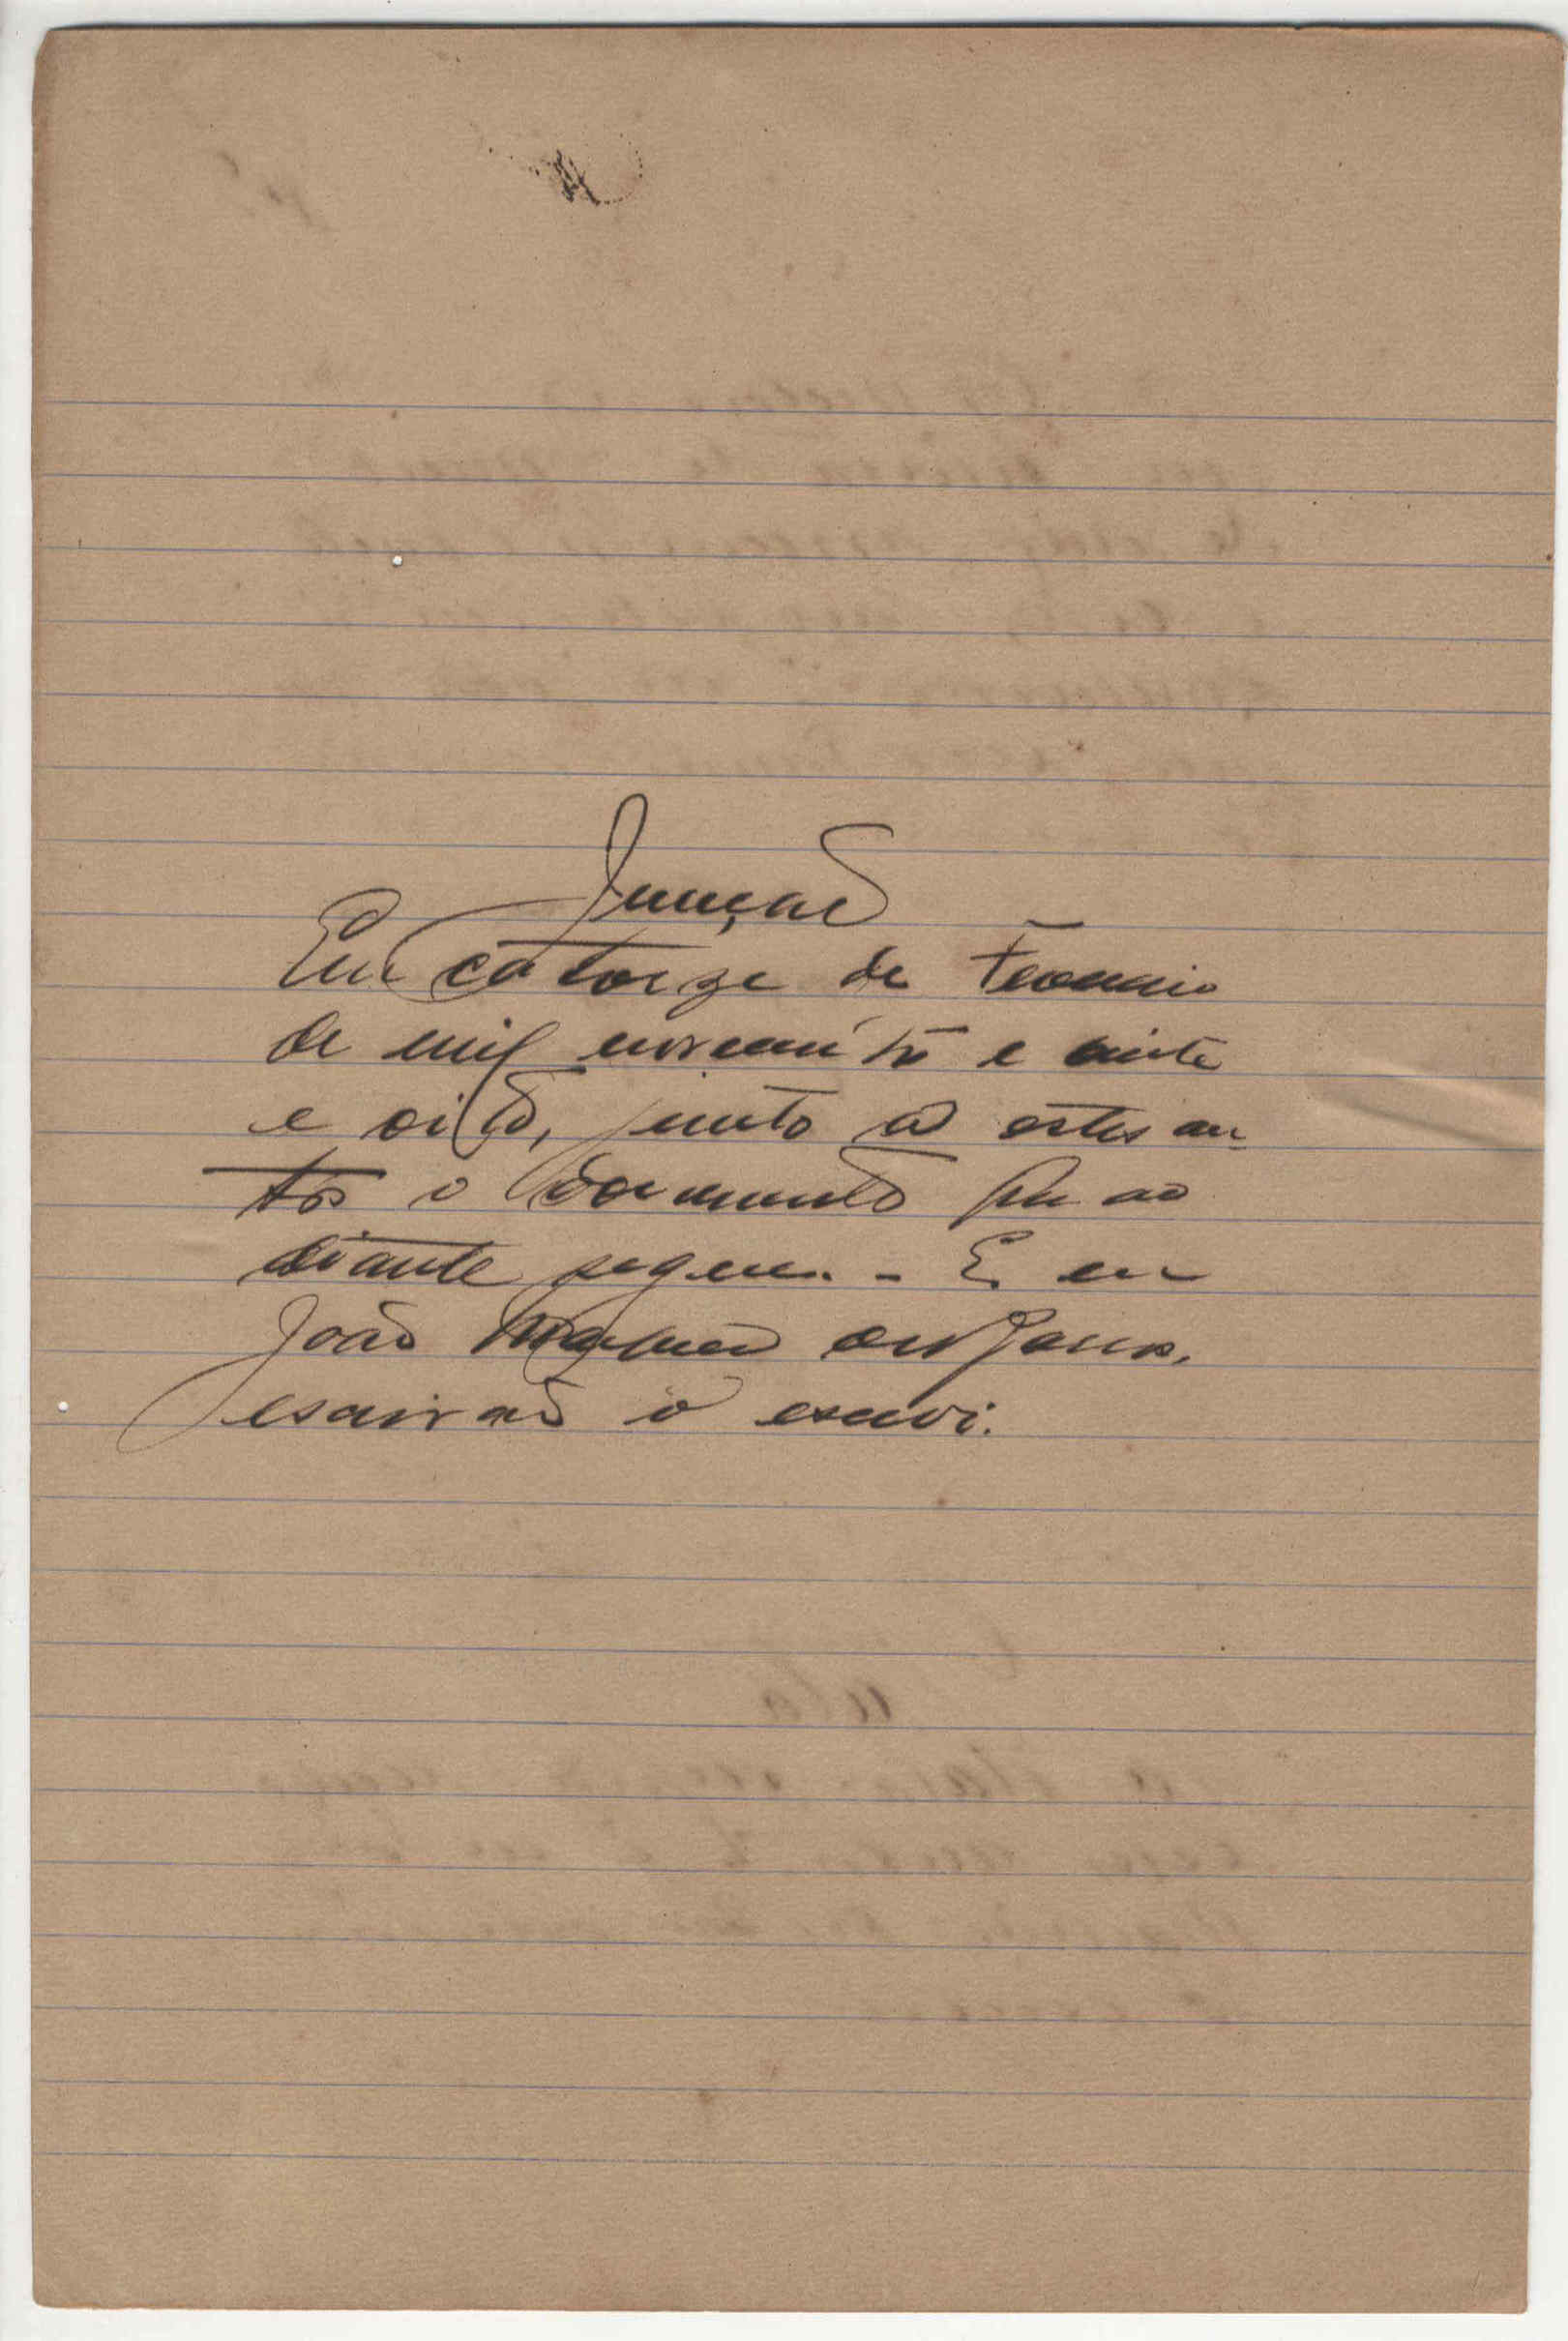 Junção
Em catorze de Fevereiro
de mil novecentos e vinte
e oito, junto a estes au-
tos o documento que ao
diante segue. - E eu
João
escrivão o escrevi.